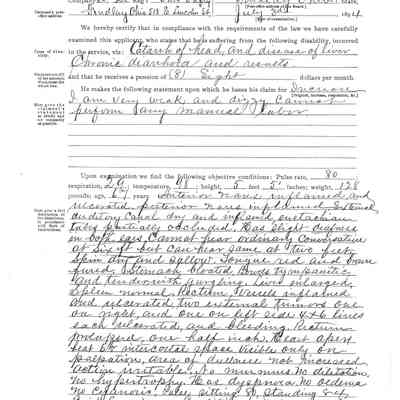 Findlay Ohio
July 25, 1894
We hereby certify that in compliance with the requirements of the law we have carefully
examined this applicant, who states that he is suffering from the following disability, incurred
in the service, viz: Catarrh of head, and disease of liver
Chronic diarrhoea and results
and that he receives a pension of (8) Eight dollars per month
He makes the following statement upon which he bases his claim for Increase
I am very weak and dizzy Cannot
perform any manual labor
Upon examination we find the following objective conditions: Pulse rate, 80
respiration, 20; temperature, 98; height, 5 feet 5 inches; weight, 128
pounds; age, years. Anterior nares inflamed and
ulcerated, posterior nares inflamed External
auditory canal dry and inflamed, eustachian
tubes partially occluded. Has slight deafness
in both ears. Cannot hear ordinary conversation
at six ft but can hear same at two feet
Skin dry and sallow. Tongue red and brown
furred, Stomach bloated, Bowels tympanitic
and tender with gurgling. Liver enlarged,
Spleen normal, Rectum, vessels inflamed
and ulcerated, two external tumors one
on right, and one on left side 4x6 lines
each ulcerated, and bleeding. Rectum
prolapsed, one half inch. Heart apex
beat 6th intercostal space visible only on
palpation, area of dullness not increased
action irritable. No murmurs no dilatation,
no hypertrophy. Has dyspnoea no oedema
no cyanosis. Pulse sitting 80, Standing